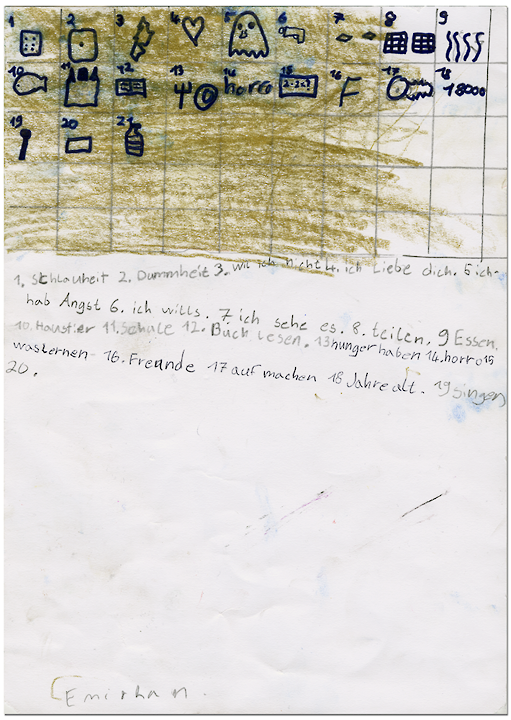 1 2 3 4 5 6 7 8 9
10 11 12 13 14 horro 15 2+2=? 16 F 17 18 18000
19 20 21
1. Schlauheit 2. Dummheit 3. wil ich nicht 4. ich Liebe dich. 5 ich-
hab Angst 6. ich wills. 7 ich sehe es. 8. teilen. 9 Essen.
10. Haustier 11. Schule 12. Buch lesen. 13 hunger haben 14. horro 15
was lernen 16. Freunde 17 auf machen 18 Jahre alt. 19 singen
20.
Emirhan.